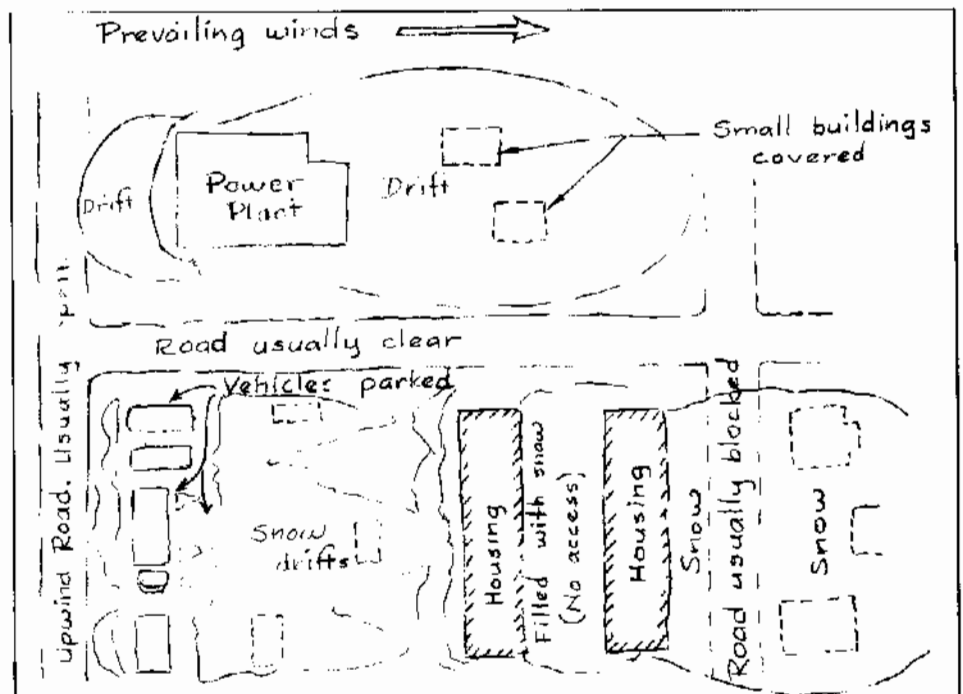 Prevailing winds
Small buildings
covered
Drift
Power
Plant
Drift
Road usually clear
Vehicles parked
Upwind Road. Usually
Snow
drifts
Housing
Filled with snow
(No access)
Housing
Snow
Road usually blocked
Snow